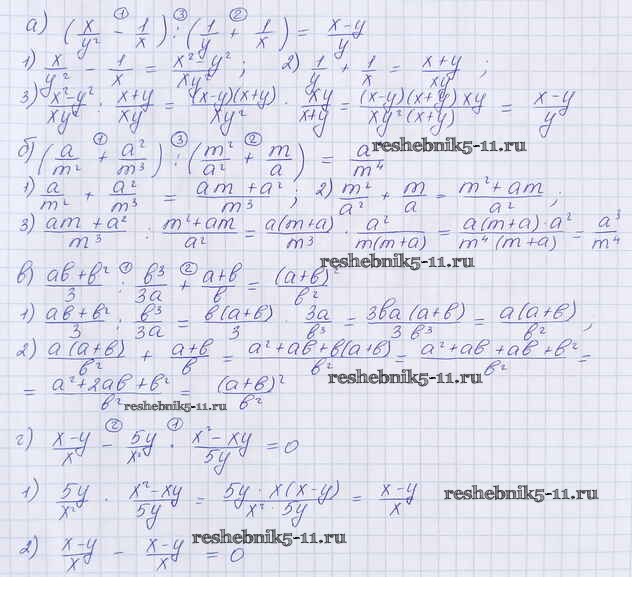 а) (x/y² − 1/x) ① : ③ (1/y + ② 1/x) = (x−y)/y
1) x/y² − 1/x = (x²−y²)/(xy²) ; 2) 1/y + 1/x = (x+y)/(xy) ;
3) (x²−y²)/(xy²) : (x+y)/(xy) = ((x−y)(x+y))/(xy²) · (xy)/(x+y) = ((x−y)(x+y)xy)/(xy²(x+y)) = (x−y)/y
б) (a/m² + ① a²/m³) : ③ (m²/a² + ② m/a) = a³/m⁴
reshebnik5-11.ru
1) a/m² + a²/m³ = (am+a²)/m³ ; 2) m²/a² + m/a = (m²+am)/a² ;
3) (am+a²)/m³ : (m²+am)/a² = (a(m+a))/m³ · a²/(m(m+a)) = (a(m+a)·a²)/(m⁴(m+a)) = a³/m⁴
reshebnik5-11.ru
в) (ab+b²)/3 : ① b³/(3a) + ② (a+b)/b = (a+b)²/b²
1) (ab+b²)/3 : b³/(3a) = (b(a+b))/3 · 3a/b³ = (3ba(a+b))/(3b³) = (a(a+b))/b² ,
2) (a(a+b))/b² + (a+b)/b = (a²+ab+b(a+b))/b² = (a²+ab+ab+b²)/b² =
reshebnik5-11.ru
= (a²+2ab+b²)/b² = (a+b)²/b²
reshebnik5-11.ru
г) (x−y)/x − ② 5y/x² · ① (x²−xy)/(5y) = 0
1) 5y/x² · (x²−xy)/(5y) = (5y·x(x−y))/(x²·5y) = (x−y)/x
reshebnik5-11.ru
2) (x−y)/x − (x−y)/x = 0
reshebnik5-11.ru